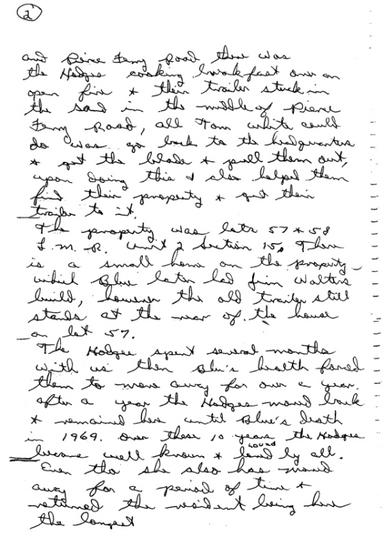 2
and Pierce Ferry Road there was
the Hodges cooking breakfast over an
open fire & their trailer stuck in
the sand in the middle of Pierce
Ferry Road, all Tom White could
do was go back to the headquarters
& get the blade & pull them out,
upon doing this & also helped them
find their property & get their
trailer to it.
The property was lots 57 & 58
L.M.R. Unit 2 Section 15, There
is a small home on the property
which Blue later had Jim Walters
build, however the old trailer still
stands at the rear of the house
on lot 57.
The Hodges spent several months
with us then Blu's health forced
them to move away for over a year.
after a year the Hodges moved back
& remained here until Blue's death
in 1969. Over these 10 years the Hodges
became well known & loved by all.
Even tho she also has moved
away for a period of time &
returned the resident being here
the longest